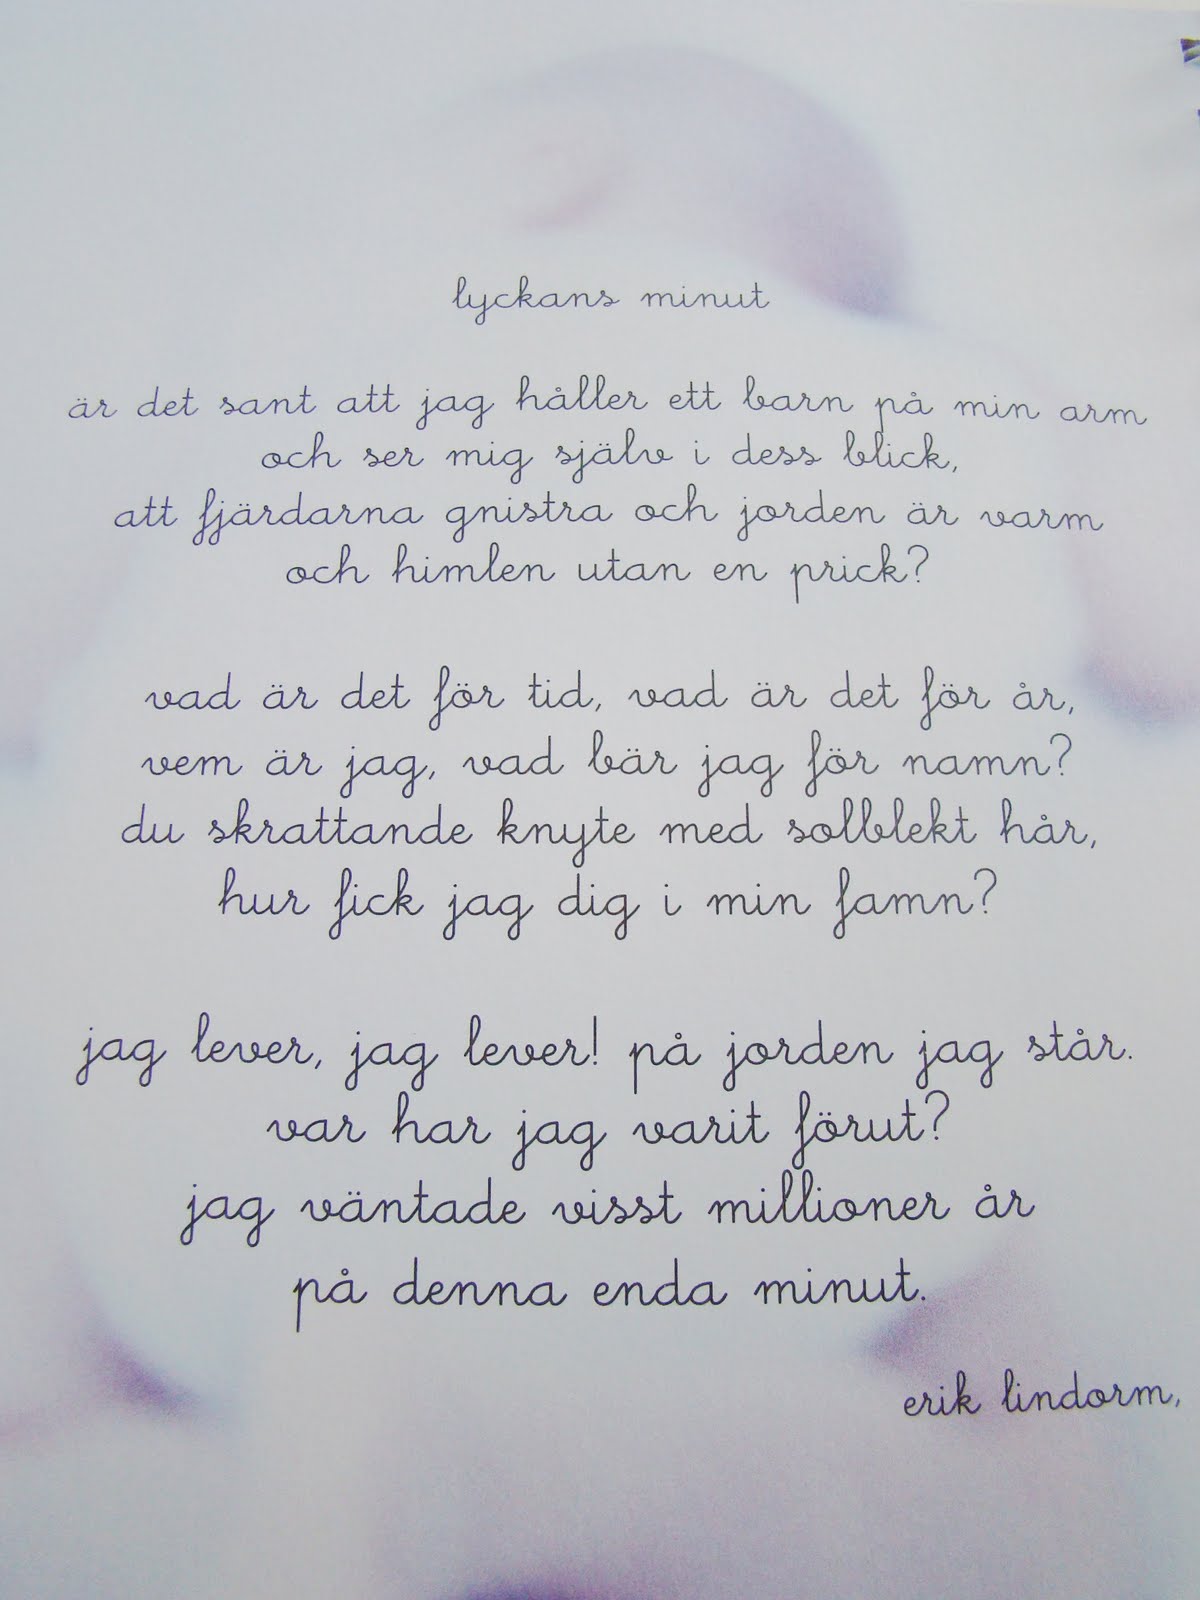 lyckans minut
är det sant att jag håller ett barn på min arm
och ser mig själv i dess blick,
att fjärdarna gnistra och jorden är varm
och himlen utan en prick?
vad är det för tid, vad är det för år,
vem är jag, vad bär jag för namn?
du skrattande knyte med solblekt hår,
hur fick jag dig i min famn?
jag lever, jag lever! på jorden jag står.
var har jag varit förut?
jag väntade visst millioner år
på denna enda minut.
erik lindorm,